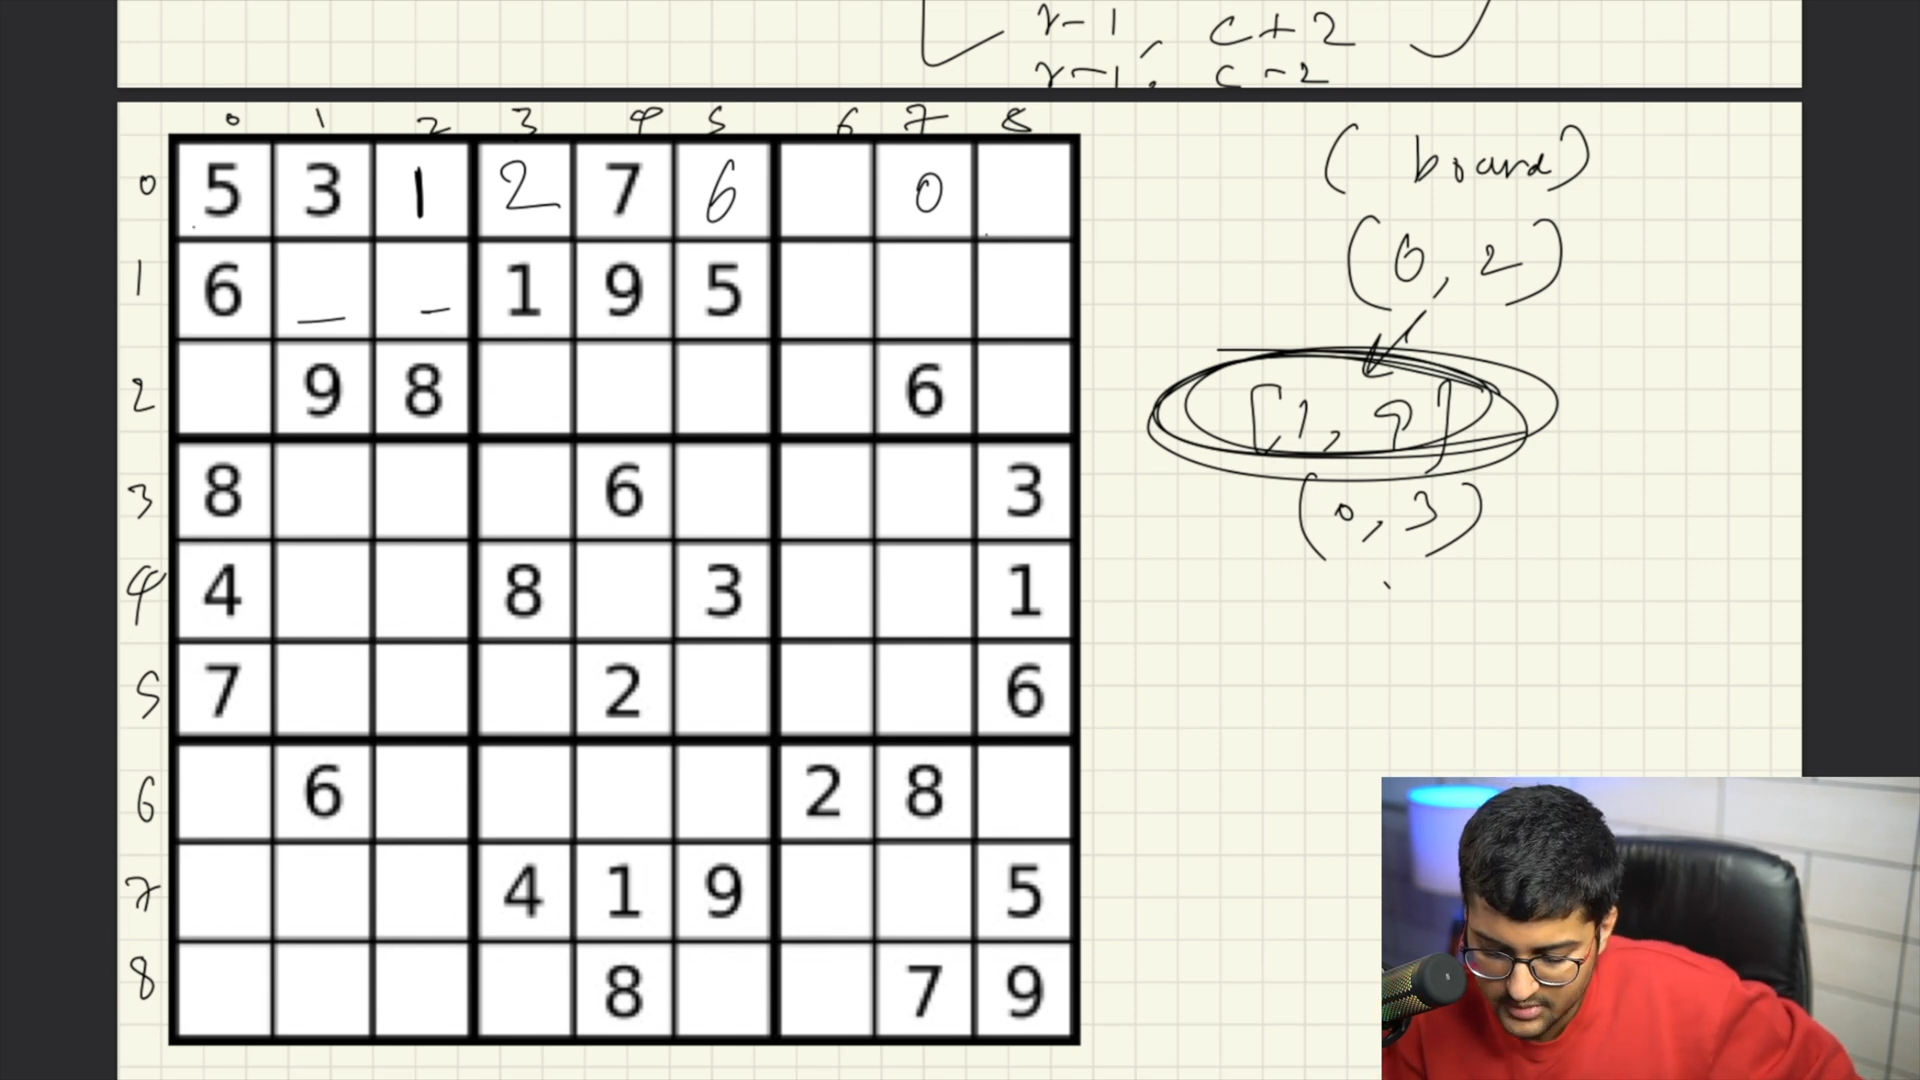 r-1, c+2
r-1, c-2
0 1 2 3 4 5 6 7 8
0 5 3 1 2 7 6 0
1 6 _ _ 1 9 5
2 9 8 6
3 8 6 3
4 4 8 3 1
5 7 2 6
6 6 2 8
7 4 1 9 5
8 8 7 9
(board)
(0, 2)
[1, 9]
(0, 3)